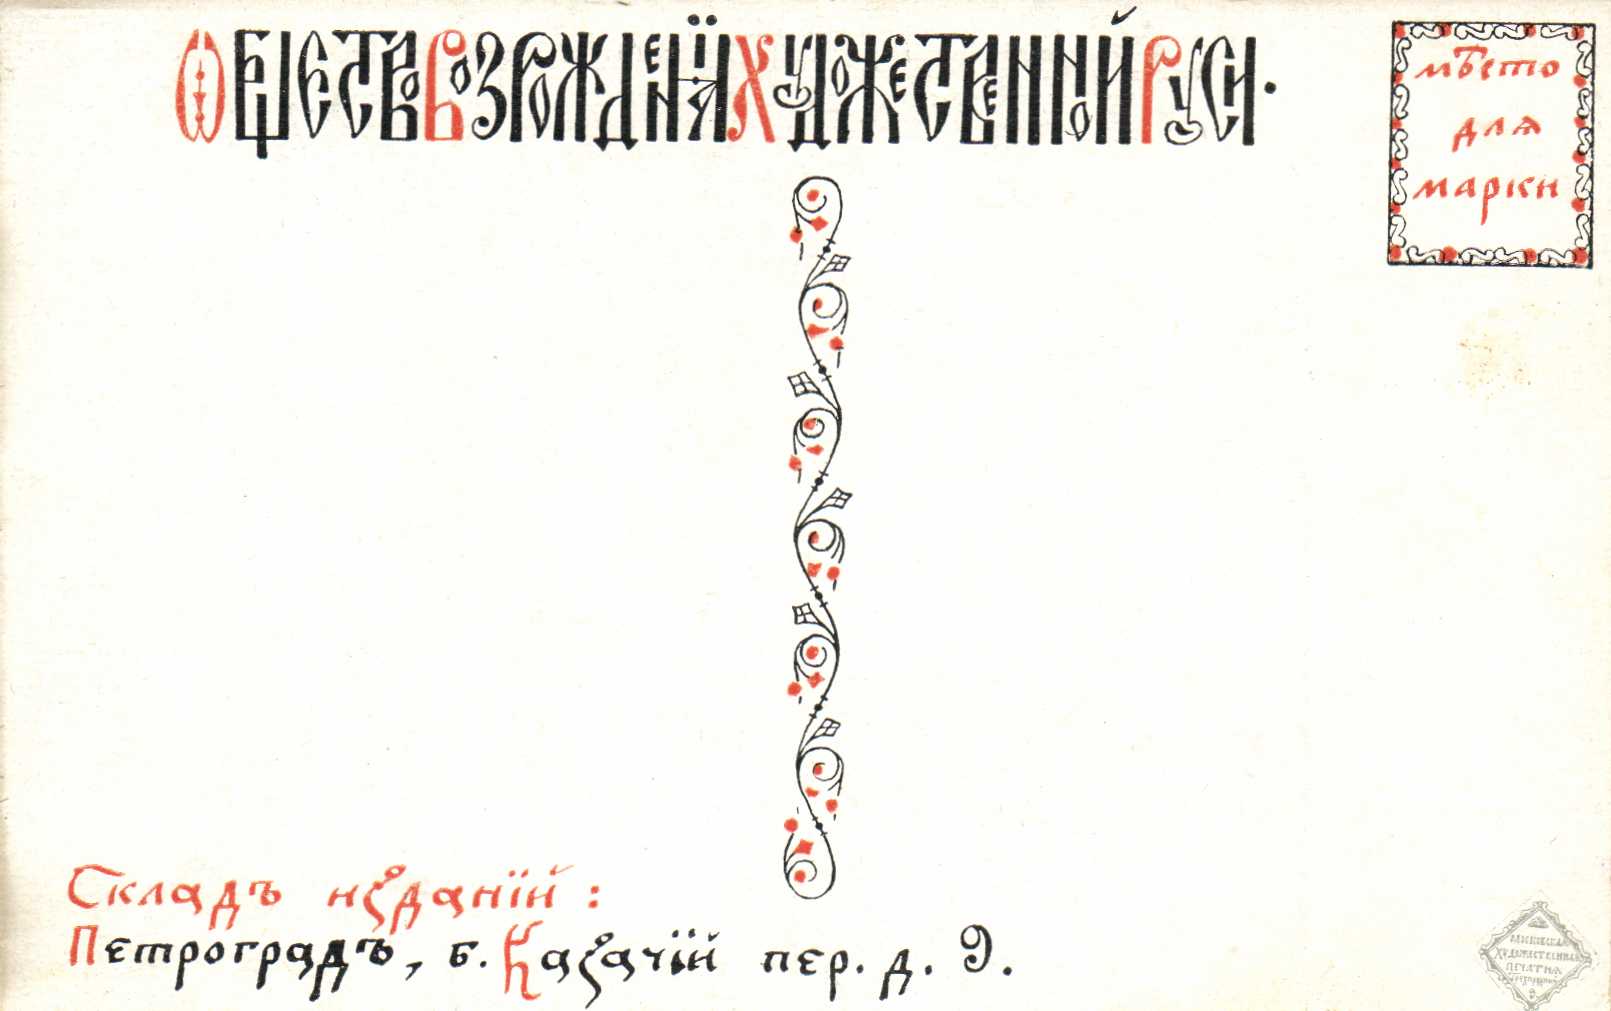 Ѡбщество Возрожденїя Художественной Руси.
мѣсто
для
марки
Складъ изданїй:
Петроградъ, б. Казачїй пер. д. 9.
ХУДОЖЕСТВЕННАЯ
ПЕЧАТНЯ